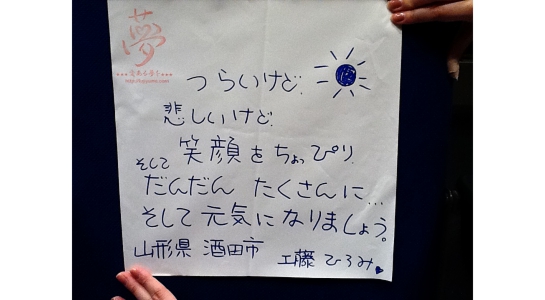 夢
つらいけど
悲しいけど
そして 笑顔をちょっぴり
だんだん たくさんに...
そして元気になりましょう。
山形県 酒田市 工藤ひろみ